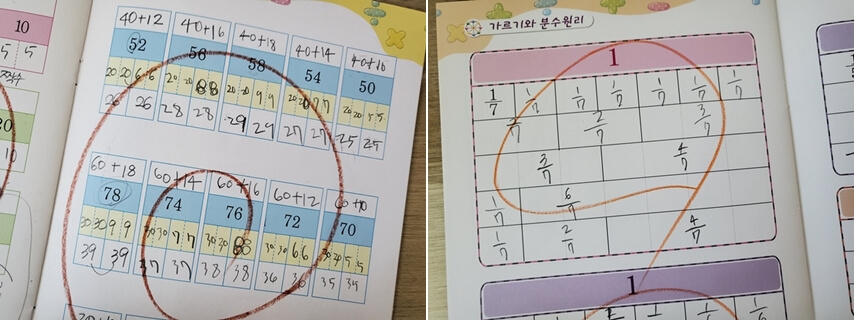 10
5 5
20
10
40+12 40+16 40+18 40+14 40+10
52 56 58 54 50
20 20 6 6 20 20 8 8 20 20 9 9 20 20 7 7 20 20 5 5
26 26 28 28 29 29 27 27 25 25
60+18 60+14 60+16 60+12 60+10
78 74 76 72 70
30 30 9 9 30 30 7 7 30 30 8 8 30 30 6 6 30 30 5 5
39 39 37 37 38 38 36 36 35 35
가르기와 분수원리
1
1/7 1/7 1/7 1/7 1/7 1/7 1/7
2/7 2/7 3/7
3/7 4/7
1/7 6/7
1/7 2/7 4/7
1